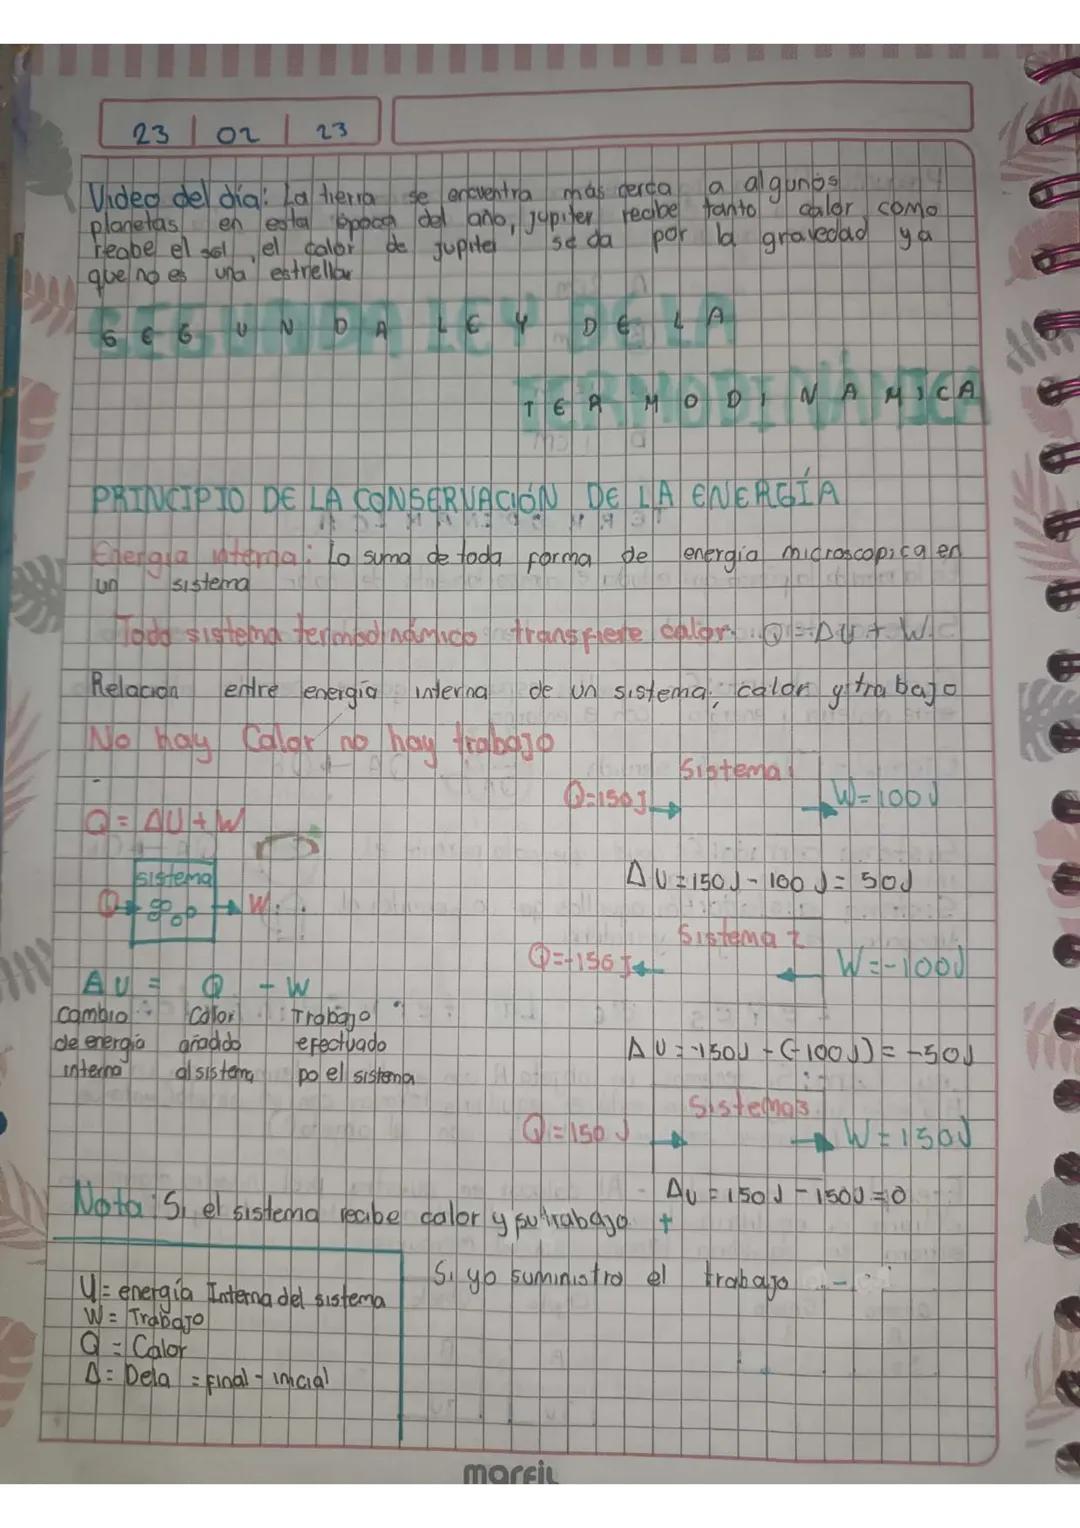 23 | 02 | 23
Video del día: La tierra se encuentra más cerca a algunos
planetas en esta época del año, jupiter recibe tanto calor como
recibe el sol, el calor de jupiter se da por la gravedad ya
que no es una estrella
SEGUNDA LEY DE LA
TERMODINÁMICA
PRINCIPIO DE LA CONSERVACIÓN DE LA ENERGÍA
Energía interna: La suma de toda forma de energía microscopica en
un sistema
Todo sistema termodinámico transfiere calor. Q = ΔU + W
Relación entre energía interna de un sistema, calor y trabajo
No hay Calor no hay trabajo
Sistema 1
Q=150J → → W=100J
Q = ΔU + W
ΔU=150J - 100J = 50J
sistema
Q → → W
Sistema 2
Q=-150J ← ← W=-100J
ΔU = Q - W
cambio de energía interna
Calor añadido al sistema
Trabajo efectuado po el sistema
ΔU = -150J - (-100J) = -50J
Sistema 3
Q=150J → → W=150J
ΔU = 150J - 150J = 0
Nota: Si el sistema recibe calor y su trabajo +
Si yo suministro el trabajo -
U= energía Interna del sistema
W= Trabajo
Q = Calor
Δ= Dela = final - inicial
marfil